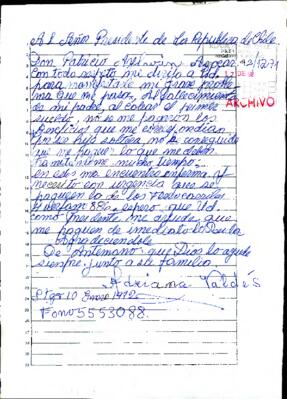 Al Señor Presidente de la República de Chile
Don Patricio Aylwin Azocar
Con todo respeto me dirijo a Ud.
para manifestarle mi grave proble
ma que me pasa, al fallecimiento
de mi padre, al cobrar el primer
sueldo, no se me pagaron los
beneficios que me correspondían
por ser hija soltera, no he conseguido
que me paguen lo que me deben.
Tramitándome mucho tiempo;
en estos me encuentro enferma y
necesito con urgencia que se
paguen lo de los
espero, que Ud.
como Presidente me ayude, que
me paguen de inmediato lo
agradeciéndole
De Antemano que Dios lo ayude
siempre junto a su familia.
Adriana Valdés
Stgo 10 Enero 1992
Fono 5553088.
ARCHIVO